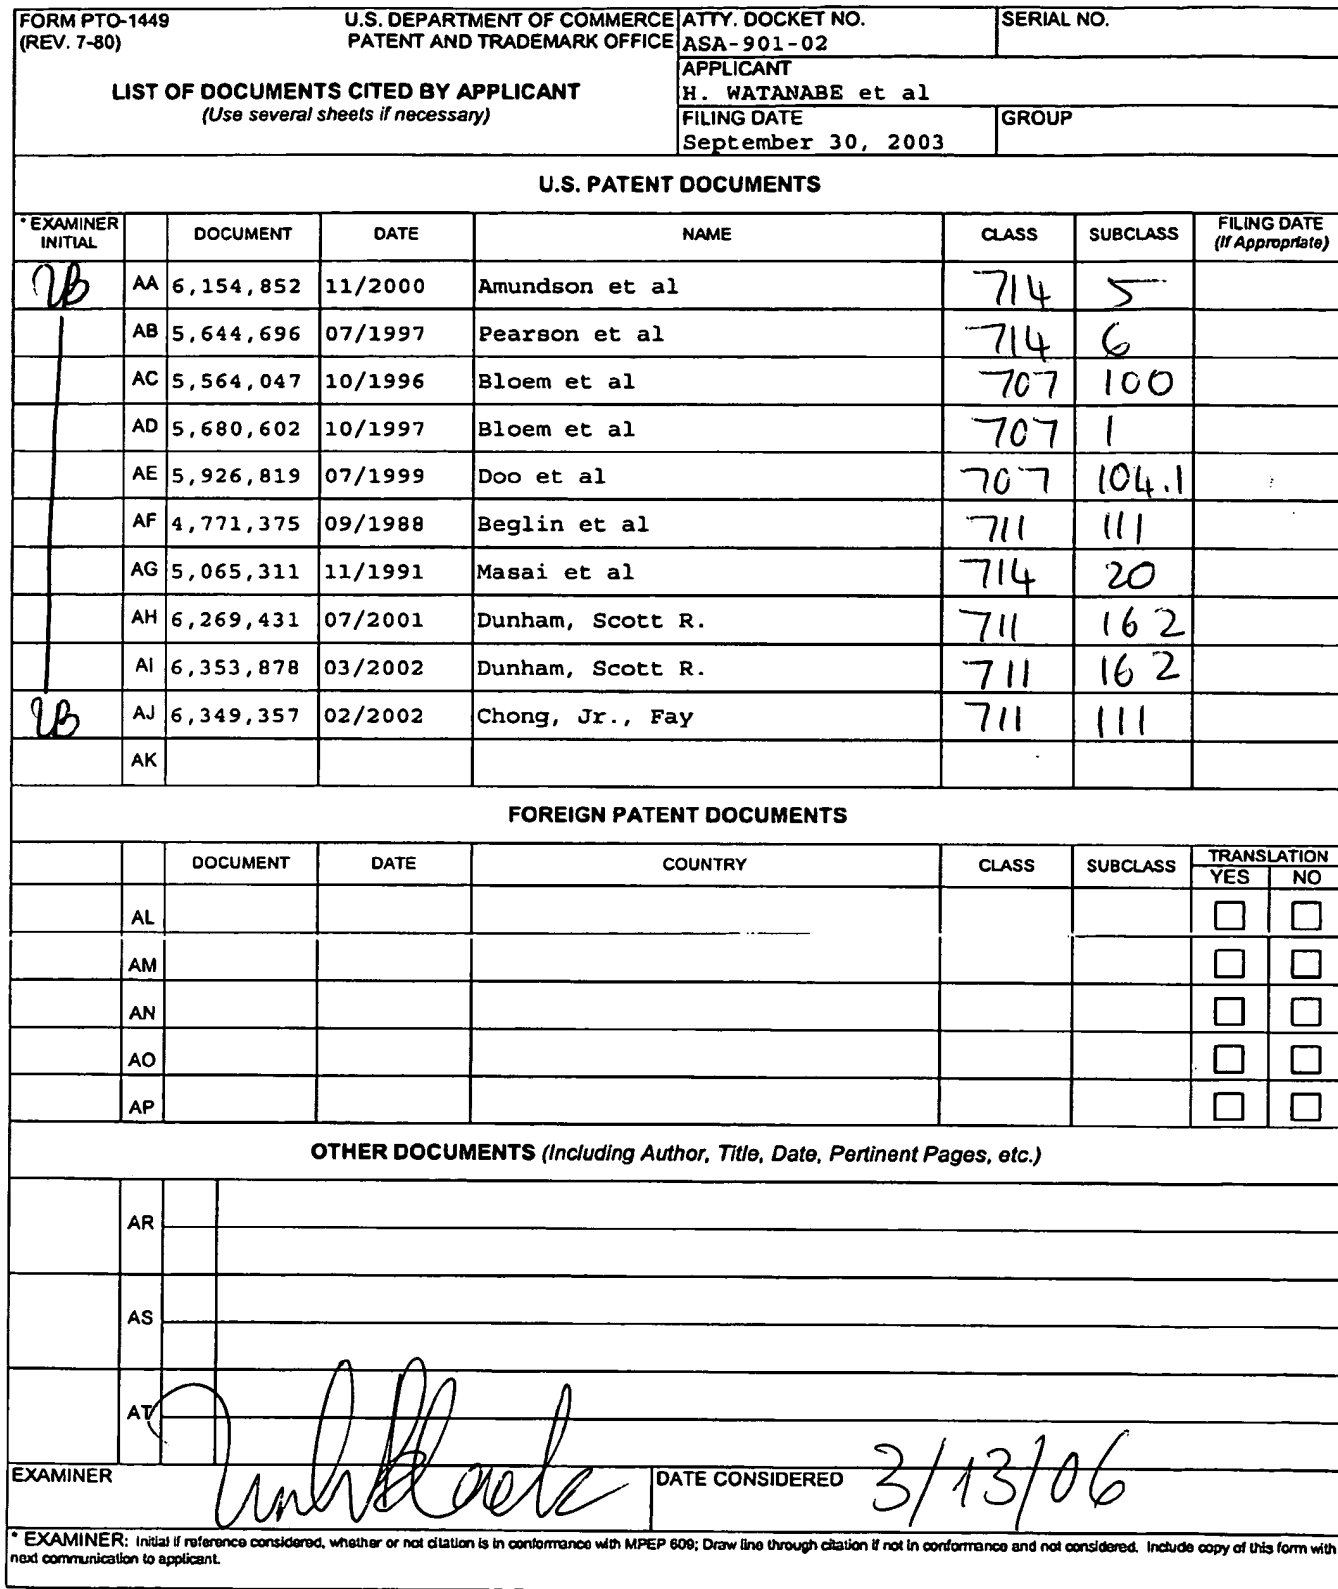 FORM PTO-1449 U.S. DEPARTMENT OF COMMERCE ATTY. DOCKET NO. SERIAL NO.
(REV. 7-80) PATENT AND TRADEMARK OFFICE ASA-901-02
APPLICANT
LIST OF DOCUMENTS CITED BY APPLICANT H. WATANABE et al
(Use several sheets if necessary) FILING DATE GROUP
September 30, 2003
U.S. PATENT DOCUMENTS
* EXAMINER INITIAL DOCUMENT DATE NAME CLASS SUBCLASS FILING DATE (If Appropriate)
AA 6,154,852 11/2000 Amundson et al 714 5
AB 5,644,696 07/1997 Pearson et al 714 6
AC 5,564,047 10/1996 Bloem et al 707 100
AD 5,680,602 10/1997 Bloem et al 707 1
AE 5,926,819 07/1999 Doo et al 707 104.1
AF 4,771,375 09/1988 Beglin et al 711 111
AG 5,065,311 11/1991 Masai et al 714 20
AH 6,269,431 07/2001 Dunham, Scott R. 711 162
AI 6,353,878 03/2002 Dunham, Scott R. 711 162
AJ 6,349,357 02/2002 Chong, Jr., Fay 711 111
AK
FOREIGN PATENT DOCUMENTS
DOCUMENT DATE COUNTRY CLASS SUBCLASS TRANSLATION
YES NO
AL
AM
AN
AO
AP
OTHER DOCUMENTS (Including Author, Title, Date, Pertinent Pages, etc.)
AR
AS
AT
EXAMINER DATE CONSIDERED 3/13/06
* EXAMINER: Initial if reference considered, whether or not citation is in conformance with MPEP 609; Draw line through citation if not in conformance and not considered. Include copy of this form with
next communication to applicant.